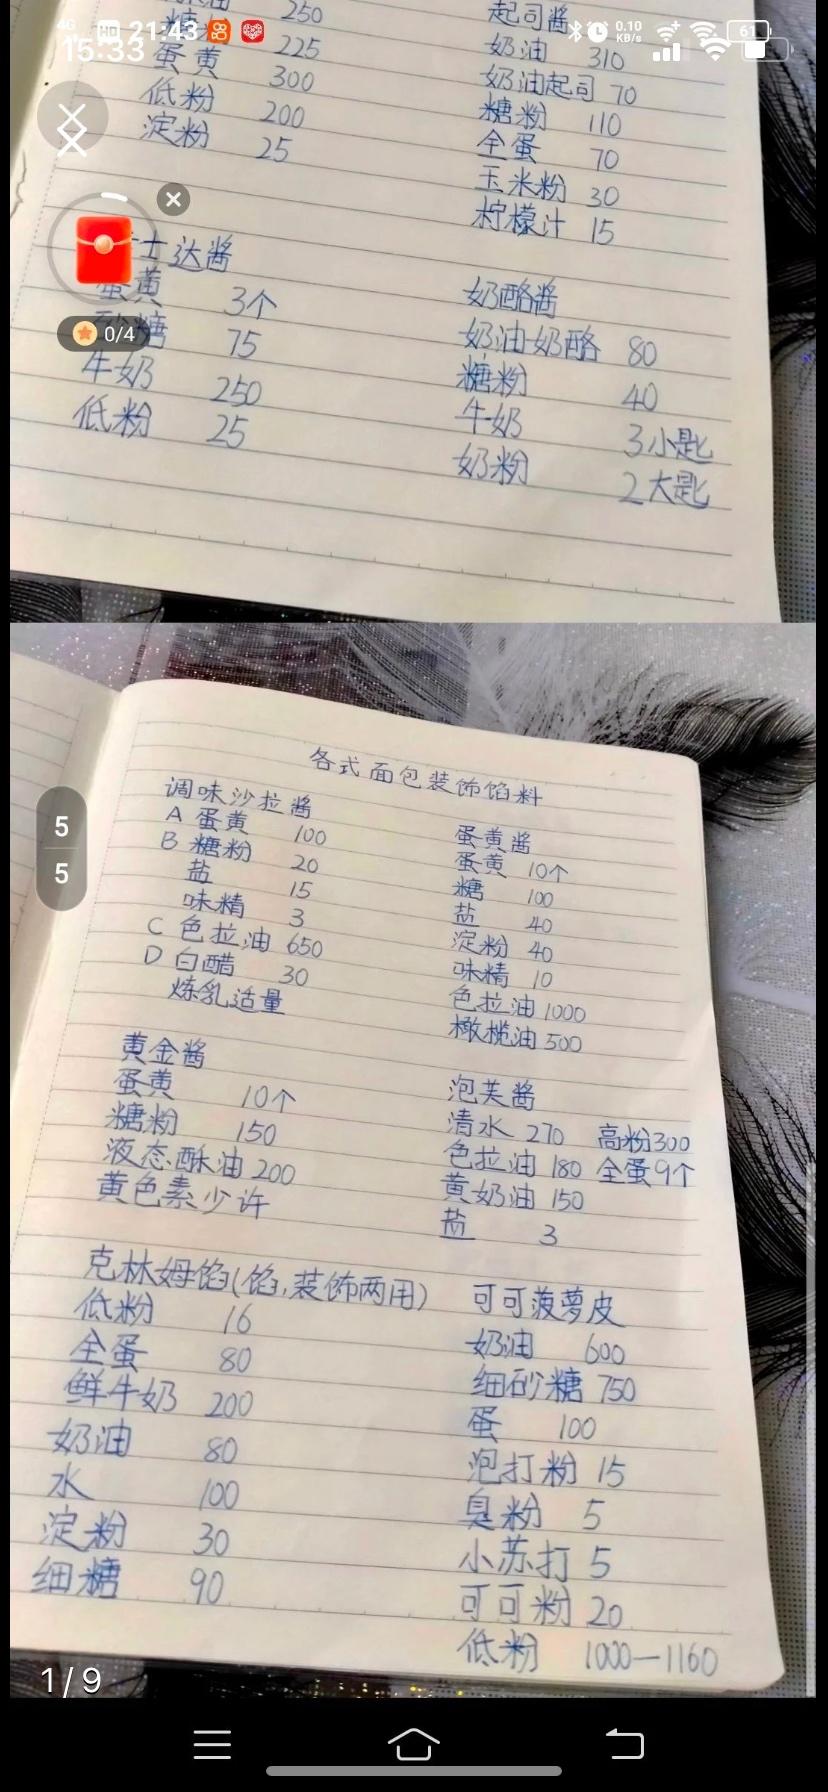 4G HD 21:43 0.10 KB/s 61
15:33
250
225
蛋黄 300
低粉 200
淀粉 25
士达酱
蛋黄 3个
砂糖 75
牛奶 250
低粉 25
起司酱
奶油 310
奶油起司 70
糖粉 110
全蛋 70
玉米粉 30
柠檬汁 15
奶酪酱
奶油奶酪 80
糖粉 40
牛奶 3小匙
奶粉 2大匙
0/4
5
5
各式面包装饰馅料
调味沙拉酱
A 蛋黄 100
B 糖粉 20
盐 15
味精 3
C 色拉油 650
D 白醋 30
炼乳适量
蛋黄酱
蛋黄 10个
糖 100
盐 40
淀粉 40
味精 10
色拉油 1000
橄榄油 500
黄金酱
蛋黄 10个
糖粉 150
液态酥油 200
黄色素少许
泡芙酱
清水 270 高粉300
色拉油 180 全蛋9个
黄奶油 150
盐 3
克林姆馅(馅,装饰两用)
低粉 16
全蛋 80
鲜牛奶 200
奶油 80
水 100
淀粉 30
细糖 90
可可菠萝皮
奶油 600
细砂糖 750
蛋 100
泡打粉 15
臭粉 5
小苏打 5
可可粉 20
低粉 1000—1160
1/9